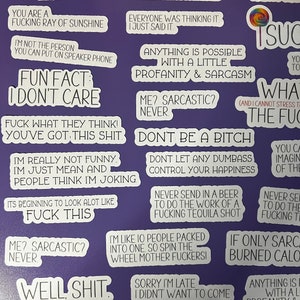 YOU ARE A
FUCKING RAY OF SUNSHINE
I'M NOT THE PERSON
YOU CAN PUT ON SPEAKER PHONE
FUN FACT
I DON'T CARE
FUCK WHAT THEY THINK!
YOU'VE GOT THIS SHIT
I'M REALLY NOT FUNNY.
I'M JUST MEAN AND
PEOPLE THINK I'M JOKING.
ITS BEGINNING TO LOOK ALOT LIKE
FUCK THIS
ME? SARCASTIC?
NEVER.
WELL SHIT
EVERYONE WAS THINKING IT
I JUST SAID IT
ANYTHING IS POSSIBLE
WITH A LITTLE
PROFANITY & SARCASM
ME? SARCASTIC?
NEVER.
DONT BE A BITCH
DONT LET ANY DUMBASS
CONTROL YOUR HAPPINESS
NEVER SEND IN A BEER
TO DO THE WORK OF A
FUCKING TEQUILA SHOT
I'M LIKE 10 PEOPLE PACKED
INTO ONE SO SPIN THE
WHEEL MOTHER FUCKERS!
SORRY I'M LATE
I DIDN'T WANT TO COME
I SUC
WHA
(AND I CANNOT STRESS T
THE FUC
YOU CA
IMAGIN
OF TH
NEVER SEN
TO DO THE
FUCKING T
IF ONLY SARC
BURNED CALO
ANYTHING IS
WITH A